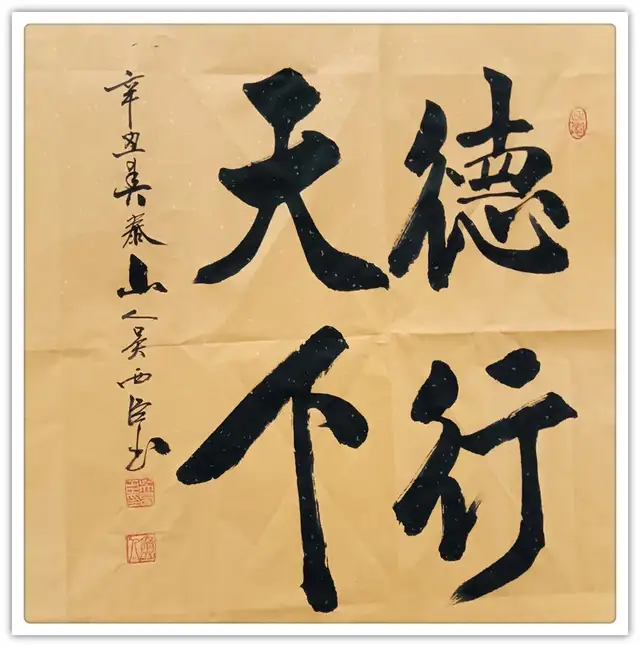 德行
天下
辛丑泰山人吴西臣书